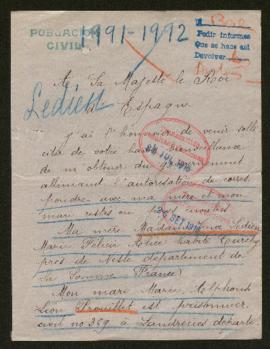 POBLACION
CIVIL
1991-1992
Pedir informes
Que se hace así
Devolver
A, Sa Majesté le Roi
d'Espagne
Ledieu
J'ai l'honneur de venir solli
citer de votre haute bienveillance
de m'obtenir du gouvernement
allemand l'autorisation de corres
pondre avec ma mère et mon
mari restés en pays envahis
Ma mère Madame
Marie habite
près de Nesle département de
la Somme (France)
Mon mari Marie, Alphonse
Léon Trouillet est prisonnier
civil no 329 à Landrecies départe